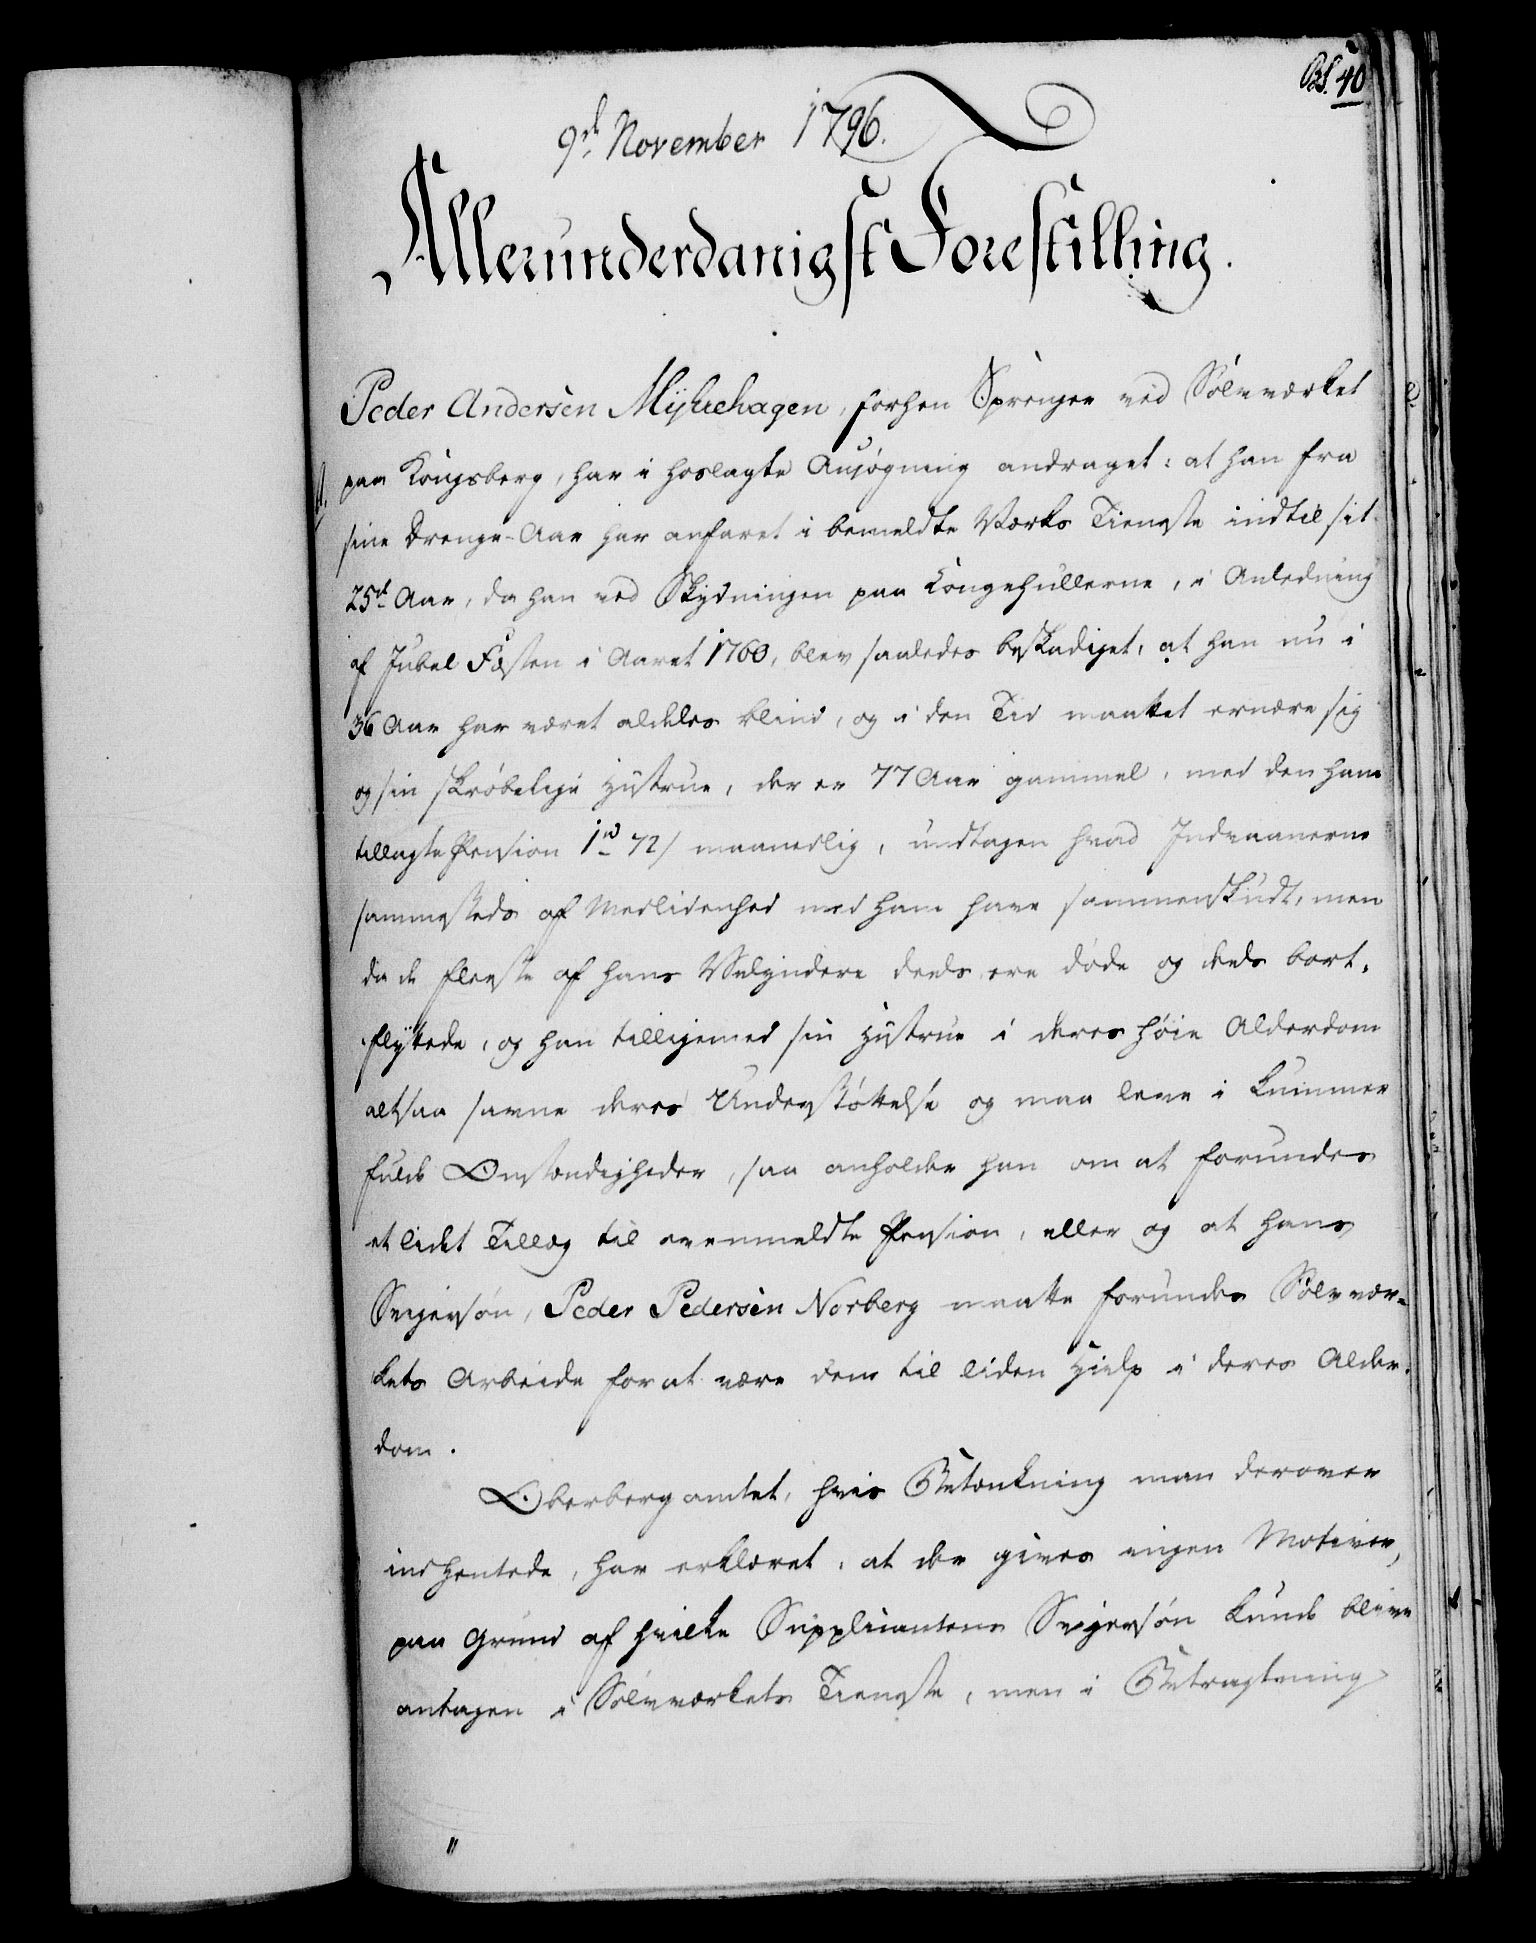 Bl. 40
9de November 1796.
Allerunderdanigst Forestilling.
Peder Andersen Myhrehagen, forhen Sprenger ved Sølvværket
paa Kongsberg, har i hoslagte Ansøgning andraget: at han fra
sine Drenge-Aar har anfaret i bemeldte Værks Tieneste indtil sit
25de Aar, da han ved Skydningen paa Kongehullerne, i Anledning
af Jubel Fæsten i Aaret 1760, blev saaledes beskadiget, at han nu i
36 Aar har været aldeles blind, og i den Tid maattet ernære sig
og sin skrøbelige Hustrue, der er 77 Aar gammel, med den ham
tillagte Pension 1rd 72s maanedlig, undtagen hvad Indvaanerne
sammesteds af Medlidenhed med ham have sammenskudt, men
da de fleeste af hans Velyndere deels ere døde og deels bort-
flyttede, og han tilligemed sin Hustrue i deres høie Alderdom
altsaa savne deres Understøttelse og maa leve i kummer
fulde Omstændigheder, saa anholder han om at forundes
et lidet Tillæg til ovenmeldte Pension, eller og at hans
Svigersøn, Peder Pedersen Norberg maatte forundes Sølvvær-
kets Arbeide for at være dem til liden Hielp i deres Alder-
dom.
Oberbergamtet, hvis Betænkning man derover
indhentede, har erklæret, at der gives ingen Motiver,
paa Grund af hvilke Supplicantens Svigersøn kunde blive
antagen i Sølvværkets Tieneste, men i Betragtning
"